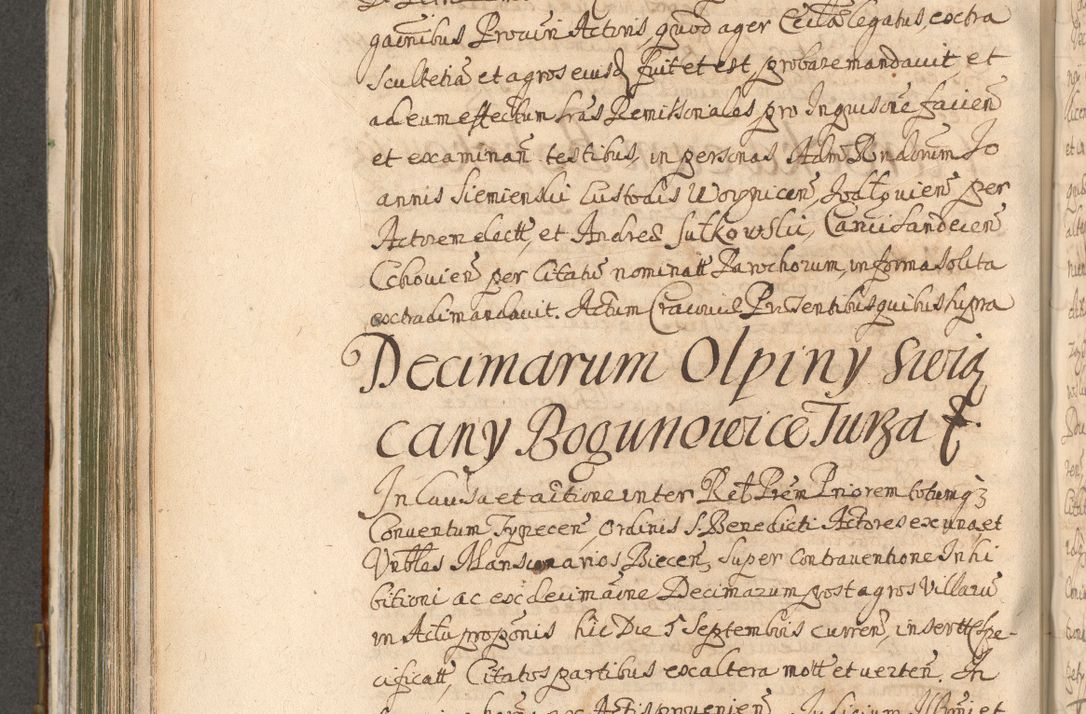 gainibus Procurin Actoris, quod ager Citta legatus, extra
Scultetia et agros eiusd fuit et est, probare mandauit et
ad eum effectum Lras Remissoriales pro Inquisone facien
et examinan testibus, in personas Adm Rndorum Jo
annis Siemienski Custodis Woynicen, Jodłouien per
Actorem elect, et Andreæ Sułkowskii, Canci Sandecen
Cchouien per Citatu nominatt Parochorum, in forma Solita
extradi mandauit. Actum Cracouiæ Præsentibus quibus supra
Decimarum Olpiny Swię
cany Bogunowice Turza
In Causa et actione inter Rel Prem Priorem totumq3
Conuentum Tynecen, Ordinis S. Benedicti Actores ex una et
Vnbles Mansionarios Biecen, Super Contrauentione Inhi
bitioni ac exdecimaone Decimarum post agros Villaru
in Actu proponis hic Die 5 Septembris curren, insertt spe-
cificatt, Citatos partibus ex altera mott et uerten. In